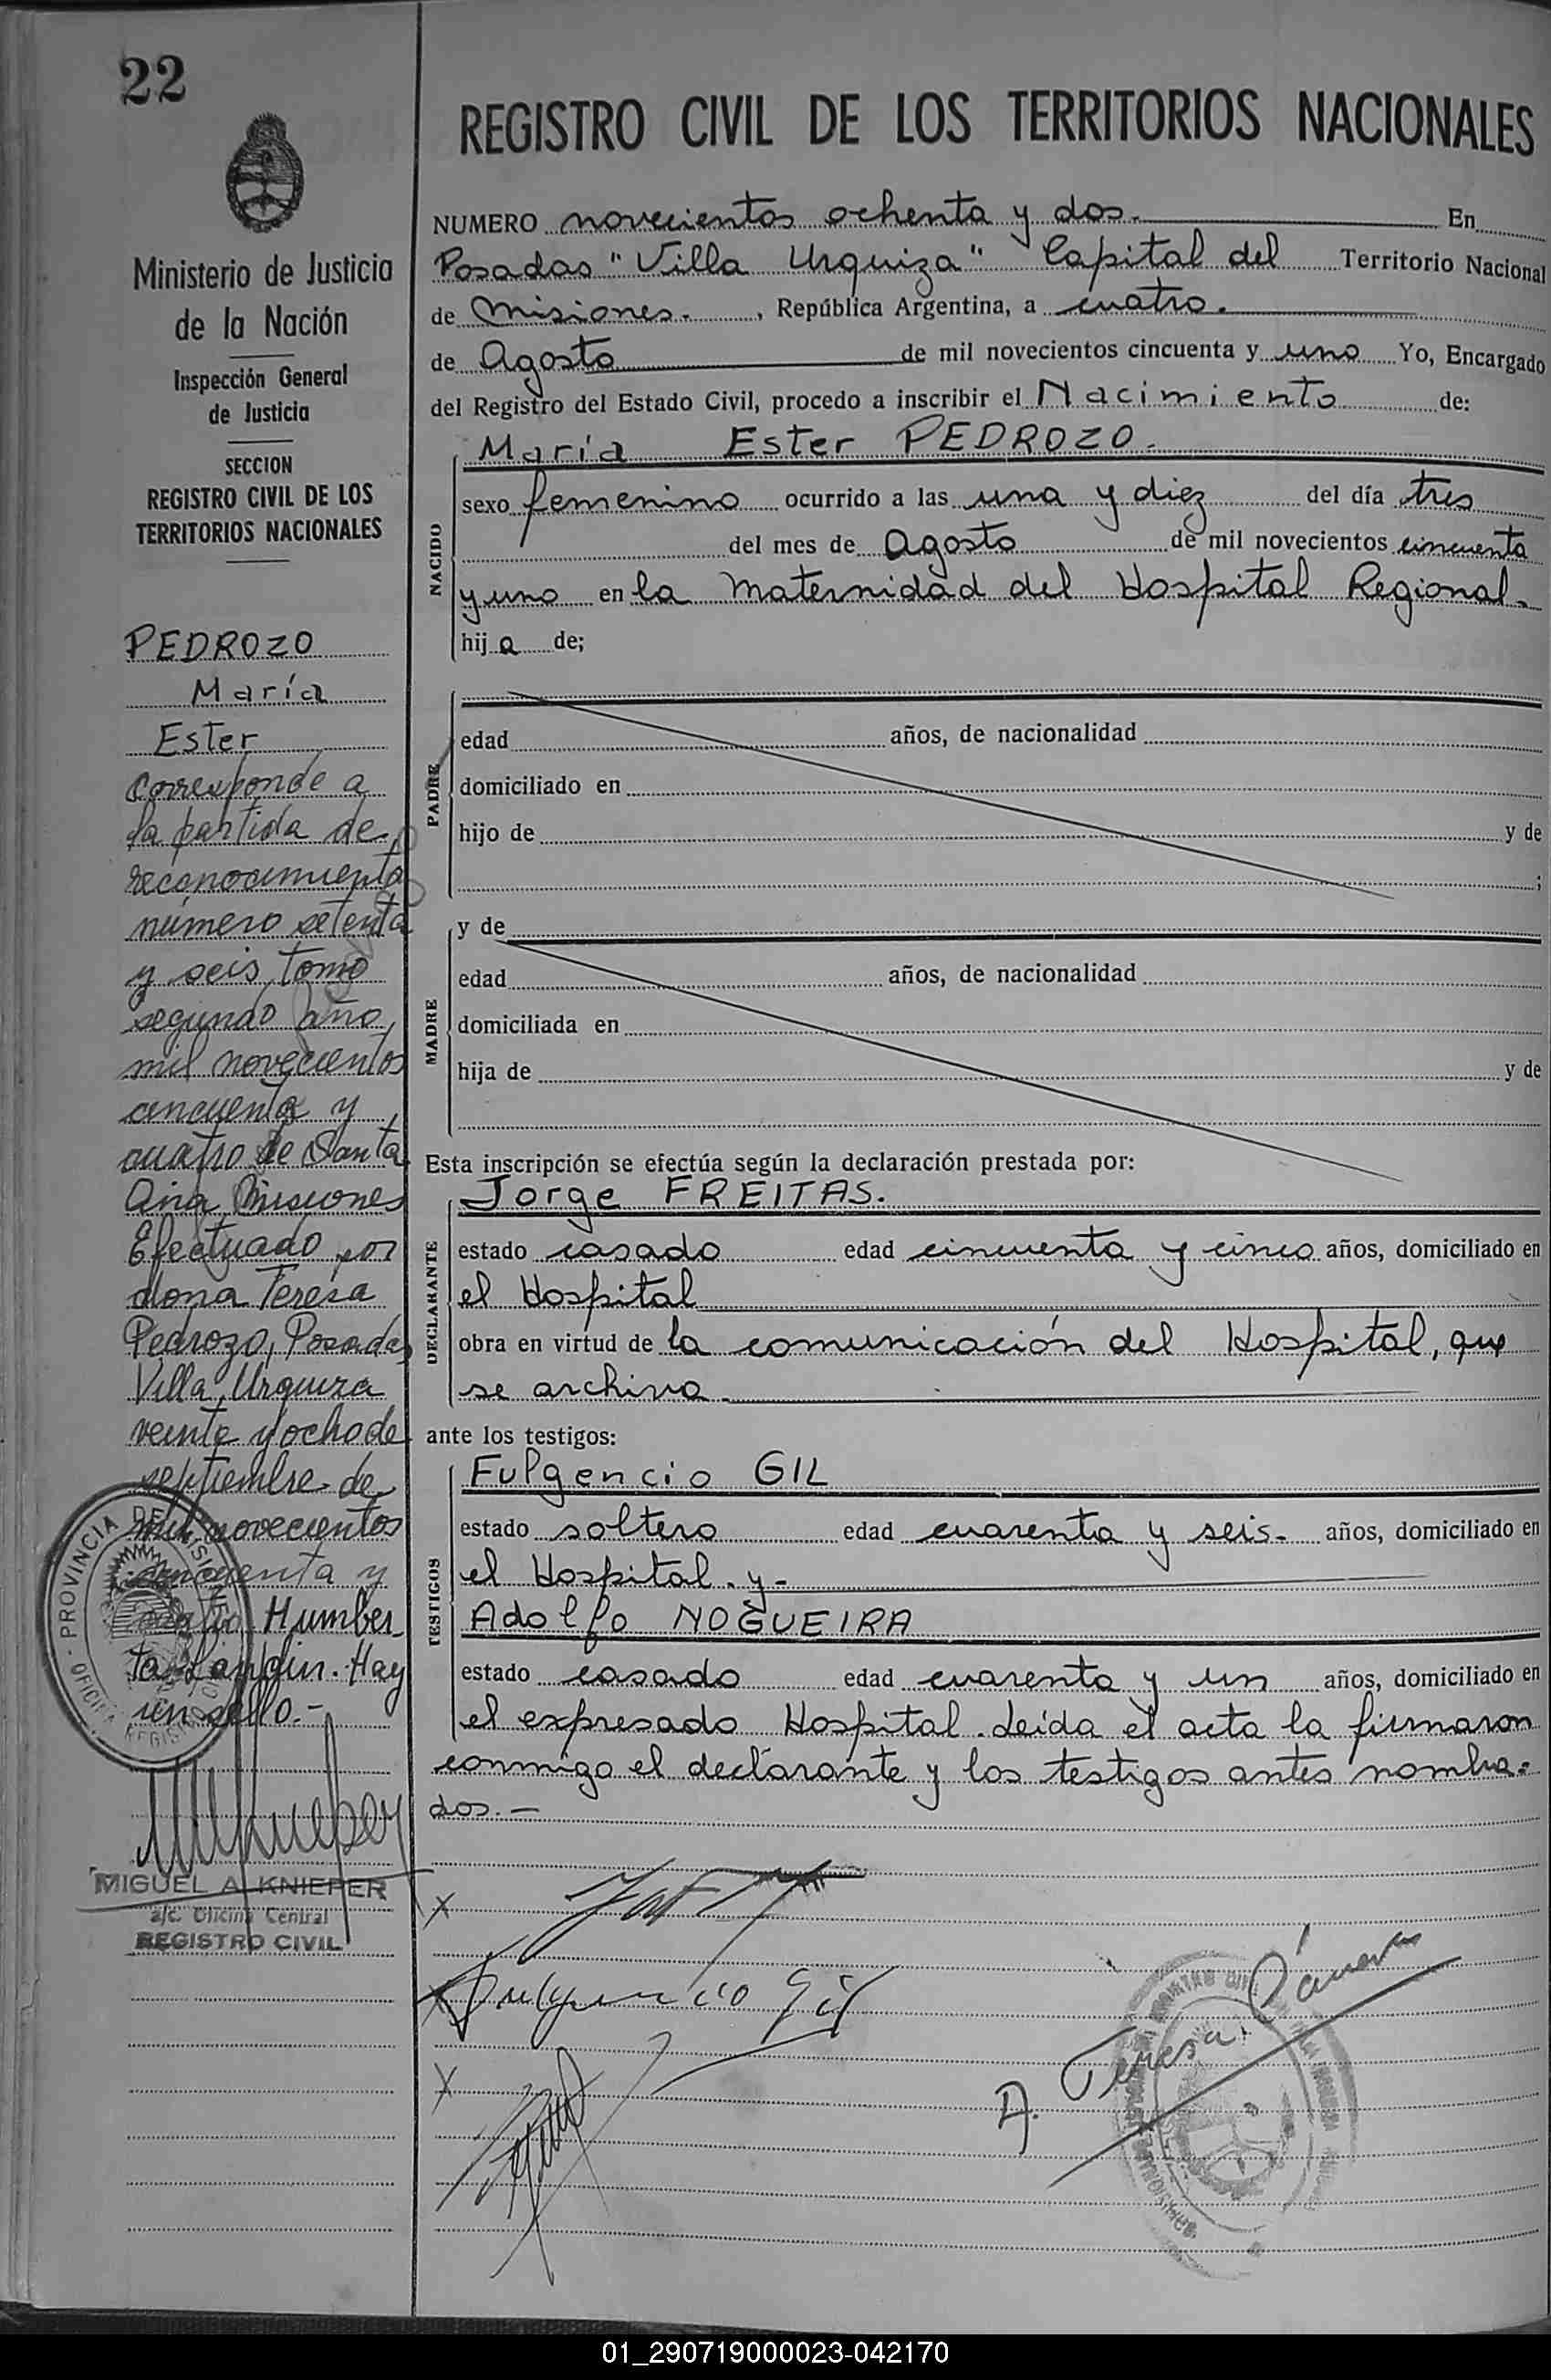 22
Ministerio de Justicia
de la Nación
Inspección General
de Justicia
SECCION
REGISTRO CIVIL DE LOS
TERRITORIOS NACIONALES
PEDROZO
María
Ester
Corresponde a
la partida de
reconocimiento
número setenta
y seis, tomo
segundo, año
mil novecientos
cincuenta y
cuatro de Santa
Ana, Misiones
Efectuado por
doña Teresa
Pedrozo, Posadas
Villa Urquiza
veinte y ocho de
septiembre de
mil novecientos
cincuenta y
Humber
Hay
un sello.-
PROVINCIA DE MISIONES
MIGUEL A. KNIEPER
a/c. Oficina Central
REGISTRO CIVIL
REGISTRO CIVIL DE LOS TERRITORIOS NACIONALES
NUMERO novecientos ochenta y dos. En
Posadas "Villa Urquiza" Capital del Territorio Nacional
de Misiones. , República Argentina, a cuatro.
de Agosto de mil novecientos cincuenta y uno Yo, Encargado
del Registro del Estado Civil, procedo a inscribir el Nacimiento de:
María Ester PEDROZO.
NACIDO
sexo femenino ocurrido a las una y diez del día tres
del mes de Agosto de mil novecientos cincuenta
y uno en la Maternidad del Hospital Regional.
hija de;
PADRE
edad años, de nacionalidad
domiciliado en
hijo de y de
;
MADRE
y de
edad años, de nacionalidad
domiciliada en
hija de y de
Esta inscripción se efectúa según la declaración prestada por:
Jorge FREITAS.
DECLARANTE
estado casado edad cincuenta y cinco años, domiciliado en
el Hospital
obra en virtud de la comunicación del Hospital, que
se archiva
ante los testigos:
Fulgencio GIL
TESTIGOS
estado soltero edad cuarenta y seis- años, domiciliado en
el Hospital. y-
Adolfo NOGUEIRA
estado casado edad cuarenta y un años, domiciliado en
el expresado Hospital. Leída el acta la firmaron
conmigo el declarante y los testigos antes nombra=
dos.-
X
X Fulgencio Gil
X
A. Teresa
01_290719000023-042170